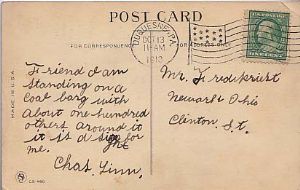 POST CARD
DUQUESNE, PA.
OCT 13
11 AM
1912
FOR CORRESPONDENCE
FOR ADDRESS ONLY
MADE IN U.S.A.
Friend I am
Standing on a
Coal barg with
about one hundred
others around it
it is a sight for
me.
Chas. Linn,
Mr. Fred
Newark Ohio
Clinton St.